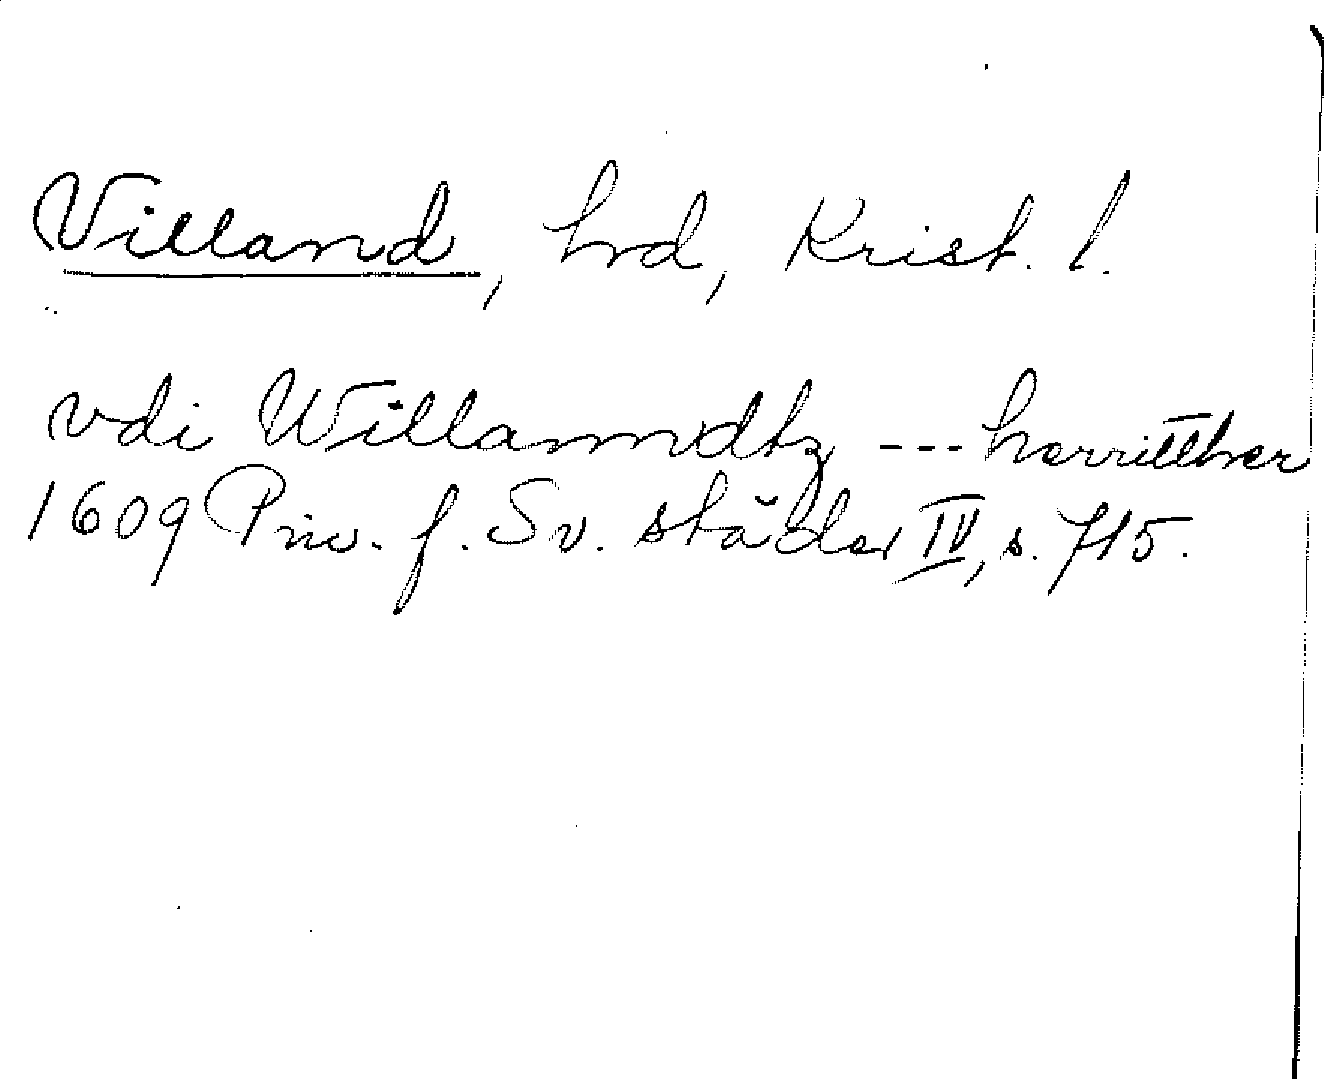 Villand, hrd, Krist. l.
vdi Willanndtz --- herritther
1609 Priv. f. Sv. städer IV, s. 715.